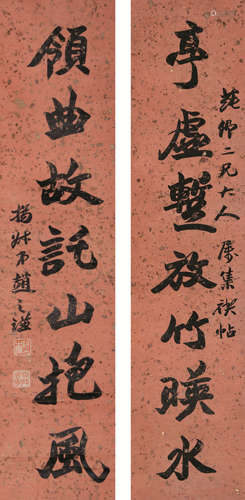 純卿二兄大人屬集禊帖
亭虛暫放竹暎水
領曲故託山抱風
撝叔弟趙之謙